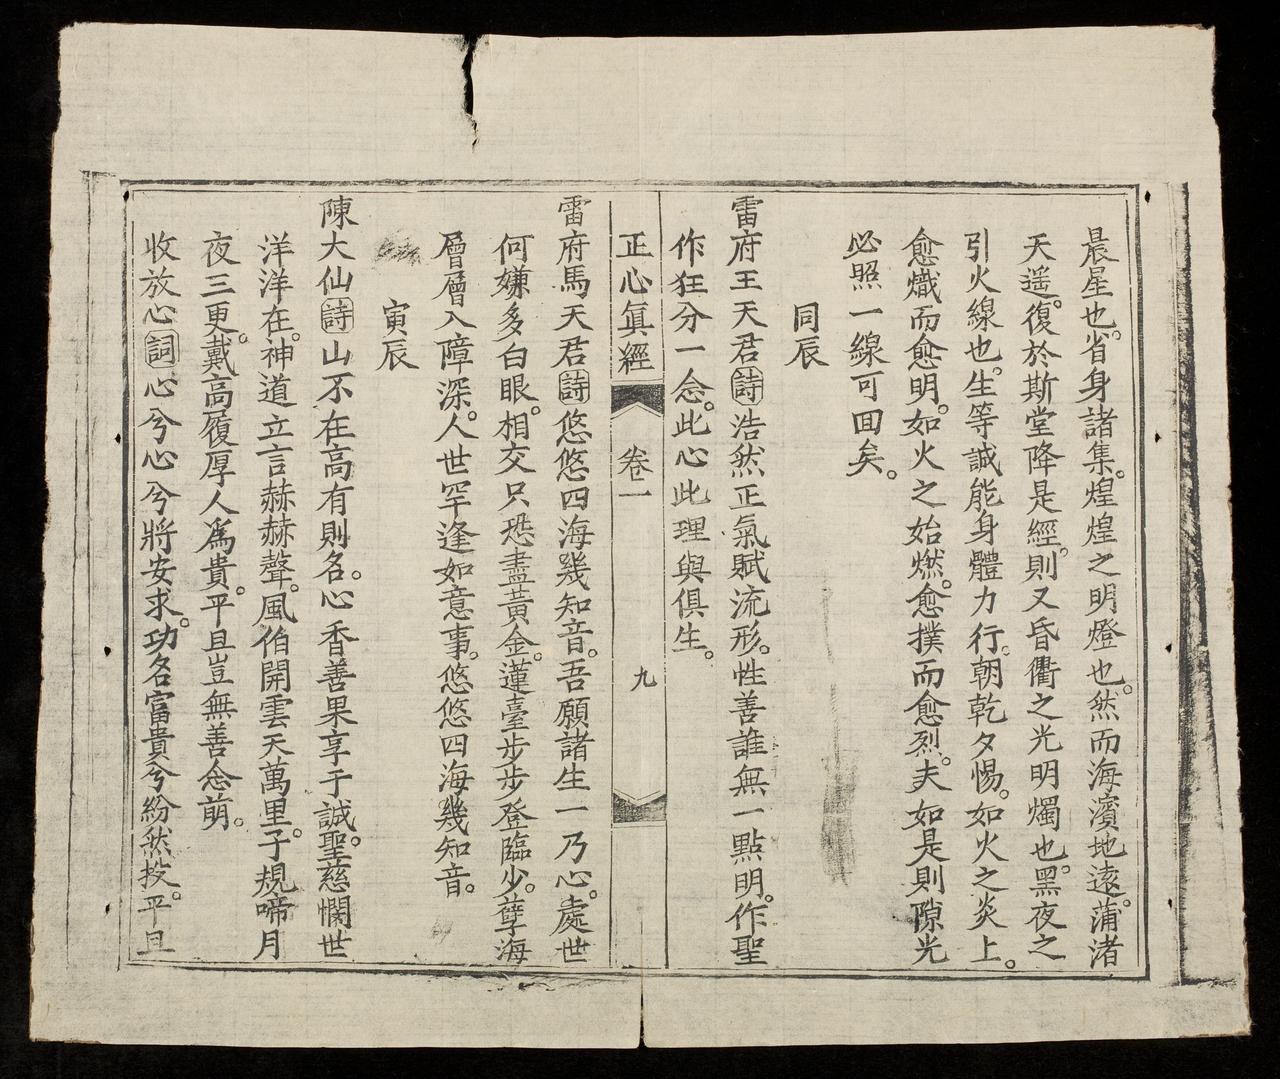 晨星也。省身諸集。煌煌之明燈也。然而海濱地遠。蒲渚
天遥。復於斯堂降是經。則又昏衢之光明燭也。黑夜之
引火線也。生等誠能身體力行。朝乾夕惕。如火之炎上。
愈熾而愈明。如火之始燃。愈撲而愈烈。夫如是則隙光
必照一線可回矣。
同辰
雷府王天君詩浩然正氣賦流形。性善誰無一點明。作聖
作狂分一念。此心此理與俱生。
正心眞經 卷一 九
雷府馬天君詩悠悠四海幾知音。吾願諸生一乃心。處世
何嫌多白眼。相交只恐盡黃金。蓮臺步步登臨少。孽海
層層入障深。人世罕逢如意事。悠悠四海幾知音。
寅辰
陳大仙詩山不在高有則名。心香善果享于誠。聖慈憫世
洋洋在。神道立言赫赫聲。風伯開雲天萬里。子規啼月
夜三更。戴高履厚人爲貴。平旦豈無善念萌。
收放心詞心兮心兮將安求。功名富貴兮紛然投。平旦